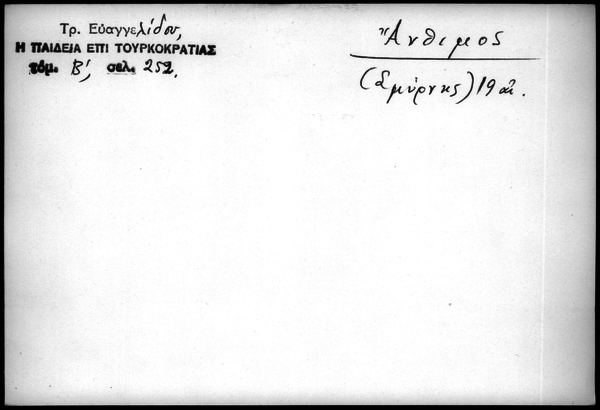 Τρ. Εὐαγγελίδου,
Η ΠΑΙΔΕΙΑ ΕΠΙ ΤΟΥΡΚΟΚΡΑΤΙΑΣ
τόμ. Β', σελ. 252.
Ἄνθιμος
(Σμύρνης) 19 αἰ.